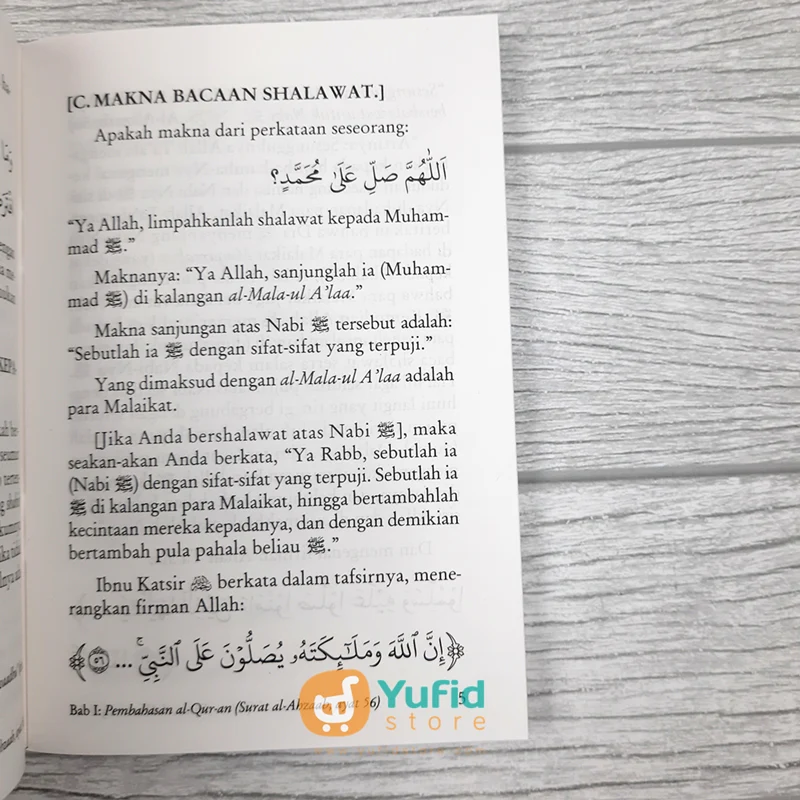 [C. MAKNA BACAAN SHALAWAT.]
Apakah makna dari perkataan seseorang:
اَللّٰهُمَّ صَلِّ عَلَى مُحَمَّدٍ؟
“Ya Allah, limpahkanlah shalawat kepada Muham-
mad ﷺ.”
Maknanya: “Ya Allah, sanjunglah ia (Muham-
mad ﷺ) di kalangan al-Mala-ul A’laa.”
Makna sanjungan atas Nabi ﷺ tersebut adalah:
“Sebutlah ia ﷺ dengan sifat-sifat yang terpuji.”
Yang dimaksud dengan al-Mala-ul A’laa adalah
para Malaikat.
[Jika Anda bershalawat atas Nabi ﷺ], maka
seakan-akan Anda berkata, “Ya Rabb, sebutlah ia
(Nabi ﷺ) dengan sifat-sifat yang terpuji. Sebutlah ia
ﷺ di kalangan para Malaikat, hingga bertambahlah
kecintaan mereka kepadanya, dan dengan demikian
bertambah pula pahala beliau ﷺ.”
Ibnu Katsir berkata dalam tafsirnya, mene-
rangkan firman Allah:
﴿إِنَّ ٱللَّهَ وَمَلَـٰٓئِكَتَهُۥ يُصَلُّونَ عَلَى ٱلنَّبِىِّ ۚ ... ۝٥٦﴾
Bab I: Pembahasan al-Qur-an (Surat al-Ahzaab: ayat 56) 5
Yufid
store